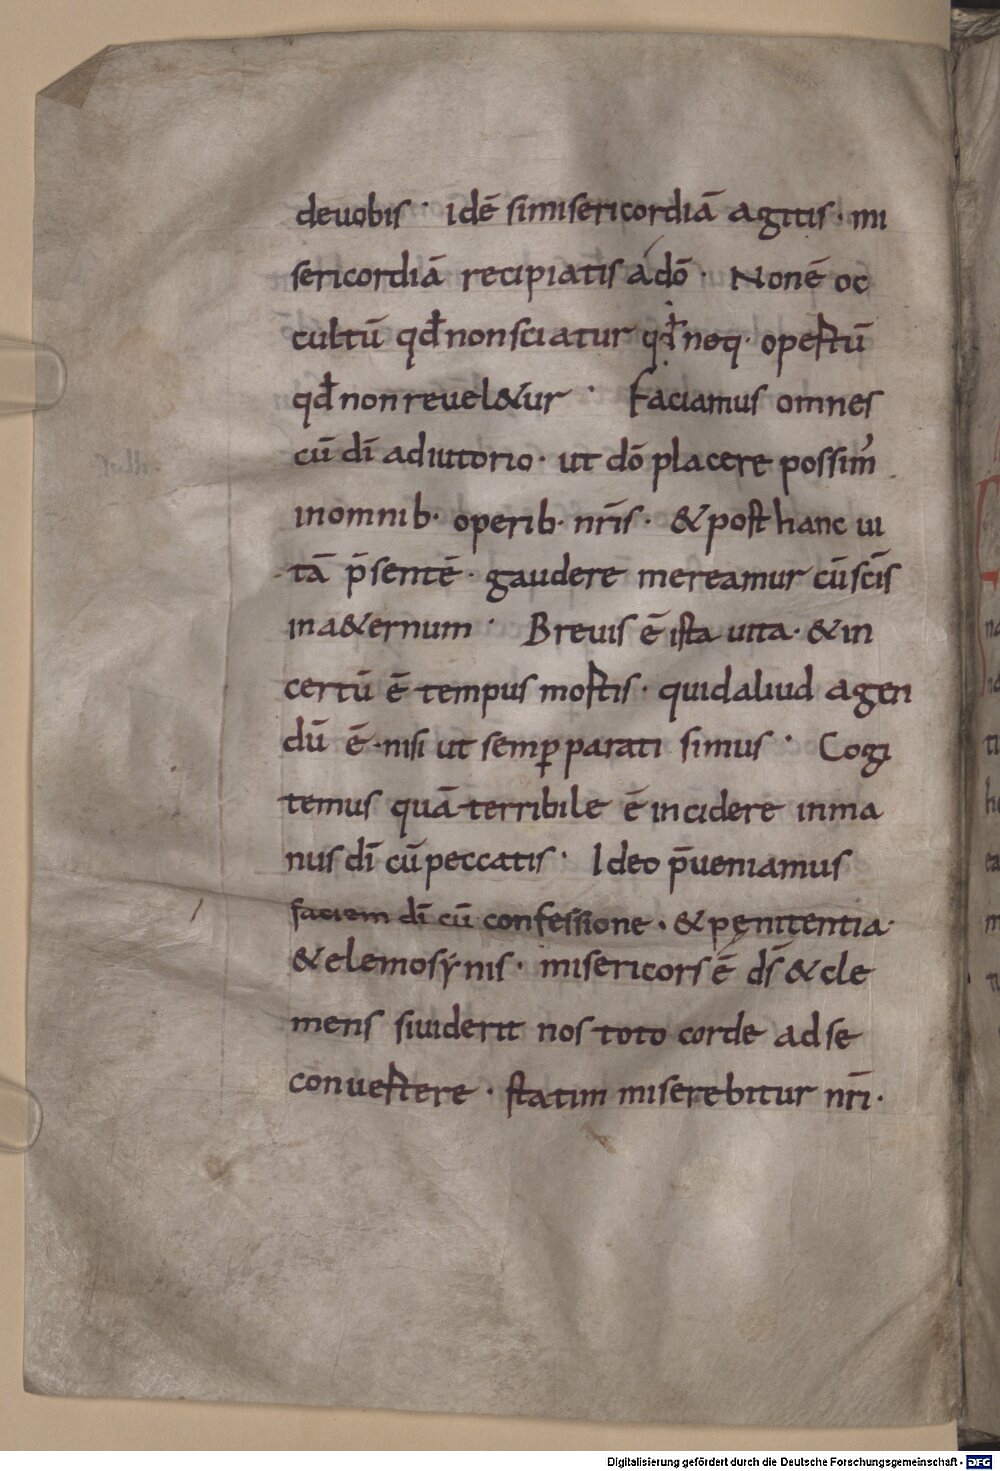 deuobis · idē simisericordiā agitis · mi
sericordiā recipiatis a dō · Nonē oc
cultū qđ nonsciatur qđ neq· opertū
qđ nonreuel&ur · Faciamus omnes
cū dī adiutorio · ut dō placere possim᾽
inomnib· operib· nr̄is · & posthanc ui
tā p̄sentē · gaudere mereamur cūsc̄is
ina&ernum · Breuis ē ista uita · & in
certū ē tempus mortis · quidaliud agen
dū ē · nisi ut semꝑ parati simus · Cogi
temus quā terribile ē incidere inma
nus dī cū peccatis · Ideo p̄ueniamus
faciem dī cū confessione · & pęnitentia·
& elemosẏnis · misericors ē ds̄ & cle
mens siuiderit nos toto corde ad se
conuertere · statim miserebitur nr̄i ·
Digitalisierung gefördert durch die Deutsche Forschungsgemeinschaft - DFG